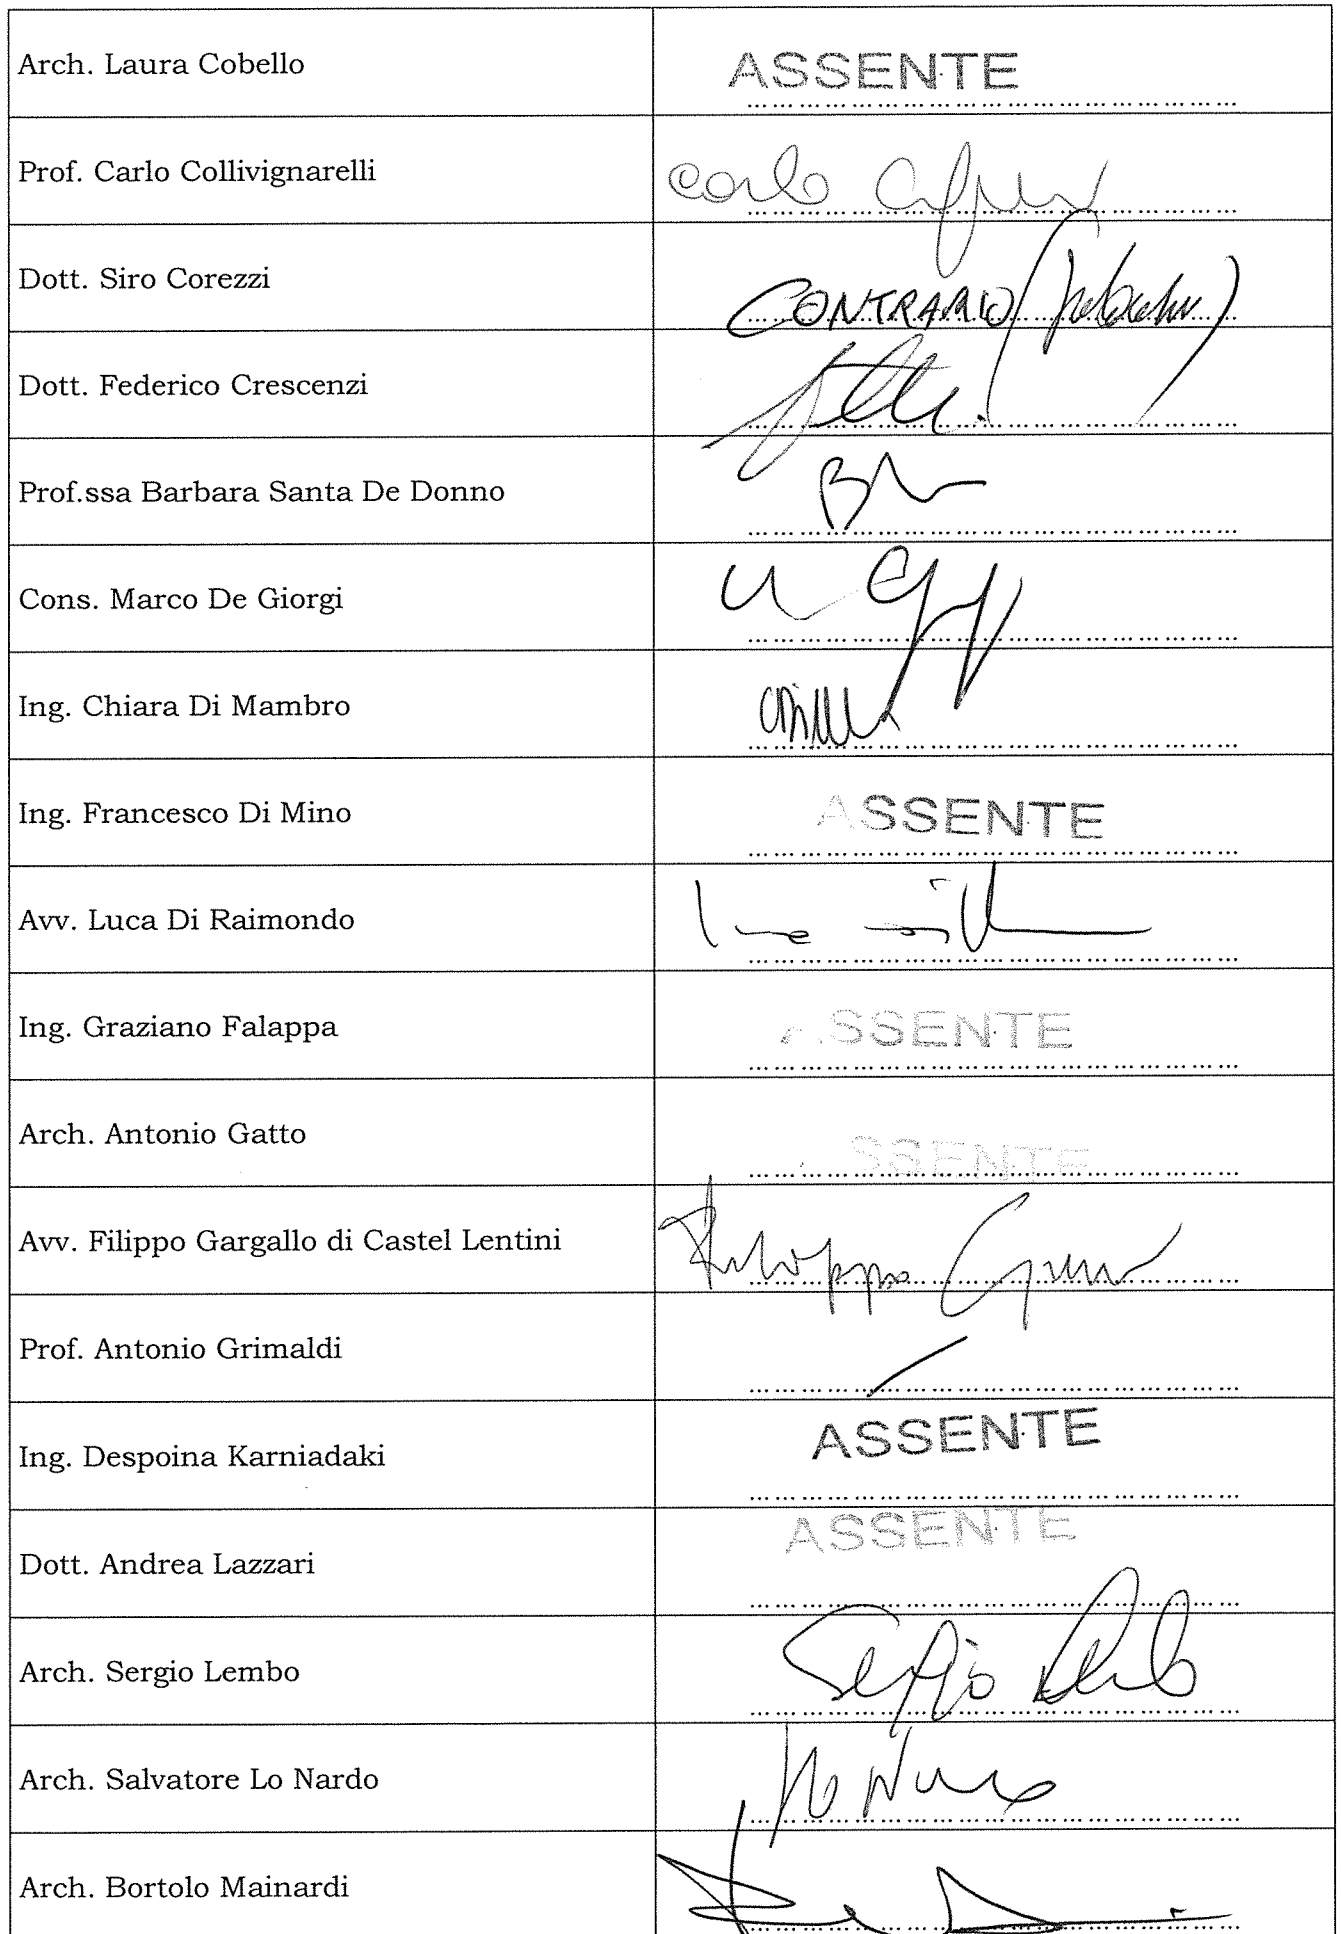 Arch. Laura Cobello
ASSENTE
Prof. Carlo Collivignarelli
Carlo
Dott. Siro Corezzi
CONTRARIO
Dott. Federico Crescenzi
Prof.ssa Barbara Santa De Donno
Cons. Marco De Giorgi
Ing. Chiara Di Mambro
Ing. Francesco Di Mino
ASSENTE
Avv. Luca Di Raimondo
Ing. Graziano Falappa
ASSENTE
Arch. Antonio Gatto
SSENTE
Avv. Filippo Gargallo di Castel Lentini
Filippo
Prof. Antonio Grimaldi
Ing. Despoina Karniadaki
ASSENTE
Dott. Andrea Lazzari
ASSENTE
Arch. Sergio Lembo
Sergio
Arch. Salvatore Lo Nardo
Arch. Bortolo Mainardi